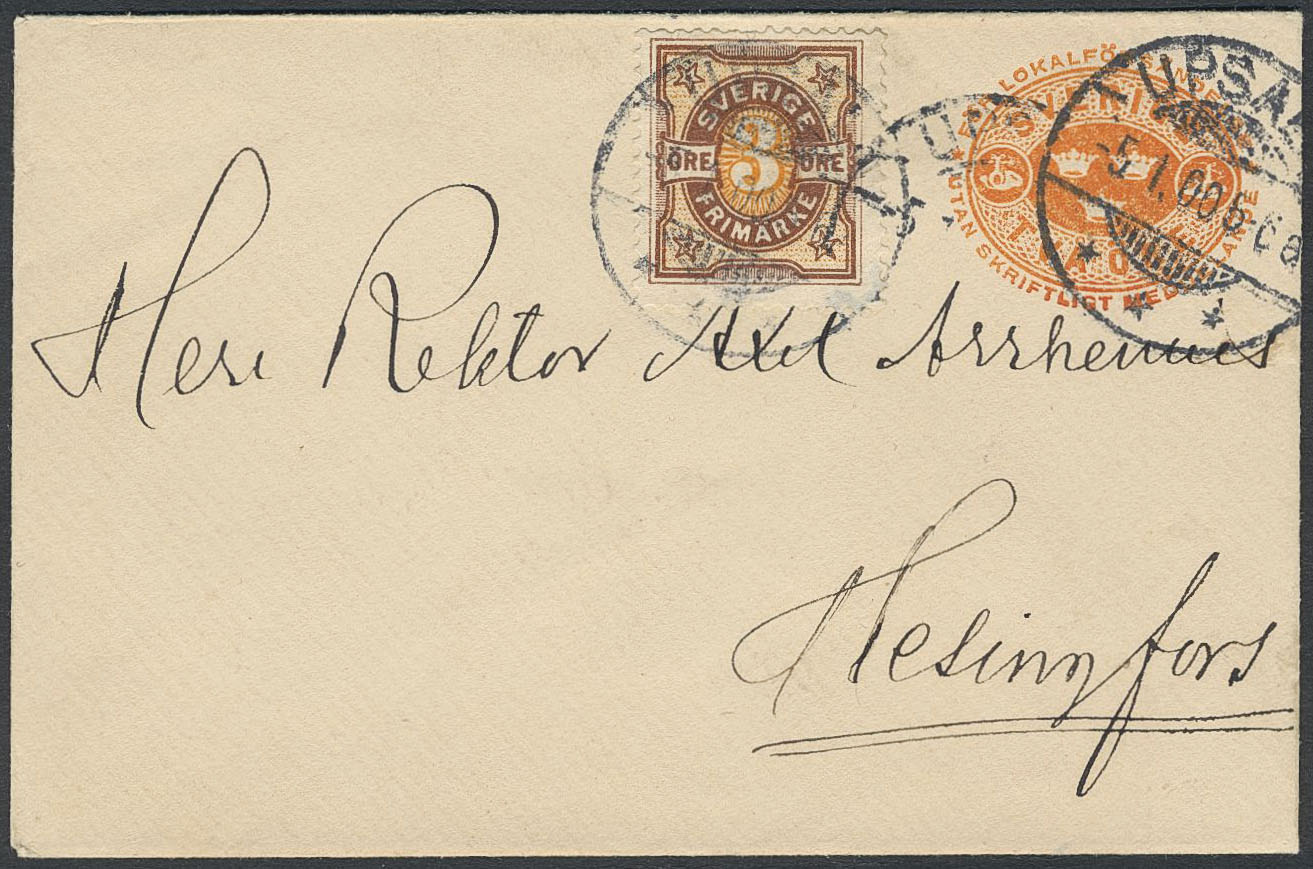 SVERIGE
ÖRE 3 ÖRE
FRIMÄRKE
LOKALFÖRSÄNDELSE
SVERIGE
TVÅ ÖRE
UTAN SKRIFTLIGT MEDDELANDE
UPSALA
5.1.00
Herr Rektor Axel Arrhenius
Helsingfors